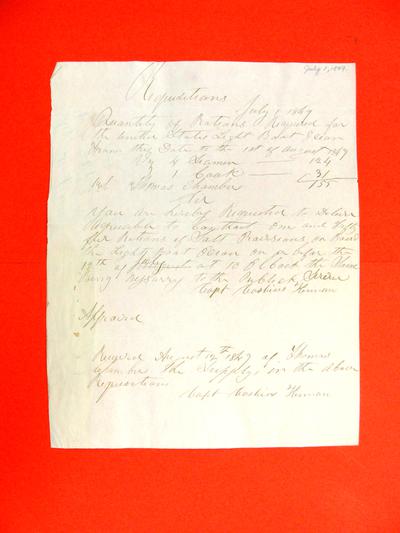 July 1, 1849.
Requisitions
July 1 1849
Quantity of Rations Required for
the United States Light Boat Ocean
from this Date to the 1st of August 1849
By 4 Seamen — 124
1 Cook — 31
155
Thomas Chamber
Sir
You are hereby Requested to Deliver
Agreeabler to Contract One and fifty
five Rations of Salt Provisions on Board
the Light Boat Ocean on or befor the
19th of at 10 O Clock the Same
being Nessarry to the Publick Service
Capt Cashier Human
Appraved
Received August 14th 1849 of Thomas
Chamber the Supply in the above
Requisitions
Capt Cashier Human